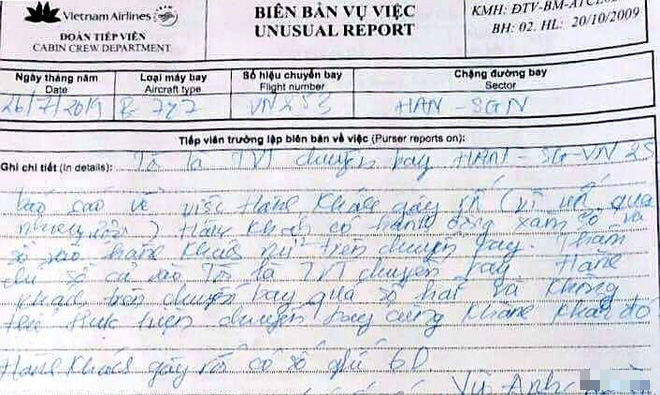 Vietnam Airlines
ĐOÀN TIẾP VIÊN
CABIN CREW DEPARTMENT
BIÊN BẢN VỤ VIỆC
UNUSUAL REPORT
KMH: ĐTV-BM-ATCL
BH: 02. HL: 20/10/2009
Ngày tháng năm
Date
Loại máy bay
Aircraft type
Số hiệu chuyến bay
Flight number
Chặng đường bay
Sector
26/7/2019
B 787
VN 253
HAN - SGN
Tiếp viên trưởng lập biên bản về việc (Purser reports on):
Ghi chi tiết (In details): Tôi là TVT chuyến bay HAN - SG - VN 25
báo cáo về việc Hành Khách gây rối (vì uống quá
nhiều rượu) Hành Khách có hành động xâm và
sờ vào hành Khách nữ trên chuyến bay. Thậm
chí sờ cả vào Tôi là TVT chuyến bay. Hành
Khách trên chuyến bay quá sợ hãi và Không
thể thực hiện chuyến bay cùng Hành Khách đó
Hành Khách gây rối có số ghế 6D.
Vũ Anh